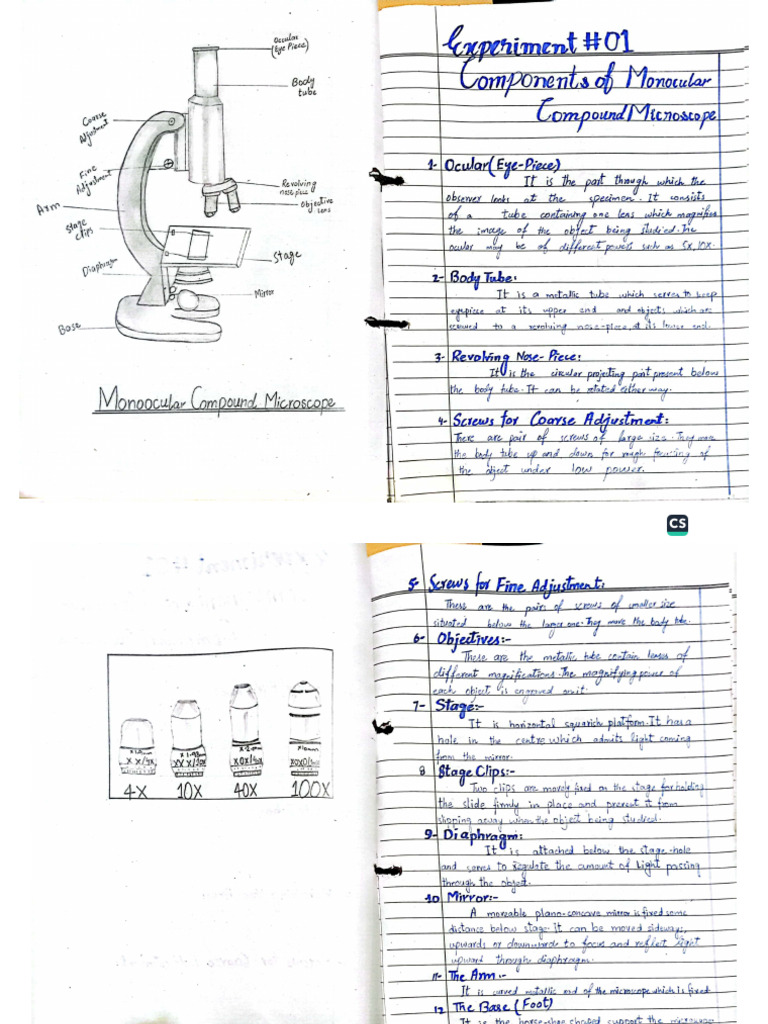 Ocular
(Eye Piece)
Body
tube
Coarse
Adjustment
Fine
Adjustment
Revolving
nose piece
Objective
lens
Arm
Stage
clips
Stage
Diaphragm
Mirror
Base
Monoocular Compound Microscope
Experiment #01
Components of Monocular
Compound Microscope
1- Ocular (Eye-Piece)
It is the part through which the
observer looks at the specimen. It consists
of a tube containing one lens which magnifies
the image of the object being studied. The
ocular may be of different powers such as 5x, 10x.
2- Body Tube:
It is a metallic tube which serves to keep
eyepiece at its upper end and objects which are
screwed to a revolving nose-piece, at its lower end.
3- Revolving Nose-Piece:
It is the circular projecting part present below
the body tube. It can be rotated either way.
4- Screws for Coarse Adjustment:
There are pair of screws of large size. They move
the body tube up and down for rough focusing of
the object under low power.
CS
5- Screws for Fine Adjustment:
These are the pairs of screws of smaller size
situated below the larger one. They move the body tube.
6- Objectives:-
These are the metallic tube contain lenses of
different magnifications. The magnifying power of
each object is engraved onit.
7- Stage:-
It is horizontal squarish platform. It has a
hole in the centre which admits light coming
from the mirror.
8 Stage Clips:-
Two clips are fixed on the stage for holding
the slide firmly in place and prevent it from
slipping away when the object being studied.
9- Diaphragm:
It is attached below the stage-hole
and serves to regulate the amount of light passing
through the object.
10 Mirror:-
A moveable plano-concave mirror is fixed some
distance below stage. It can be moved sideways,
upwards or downwards to focus and reflect light
upward through diaphragm.
11- The Arm:-
It is curved metallic end of the microscope which is fixed
12 The Base (Foot)
It is the horse-shoe shaped support the microscope
4X 10X 40X 100X